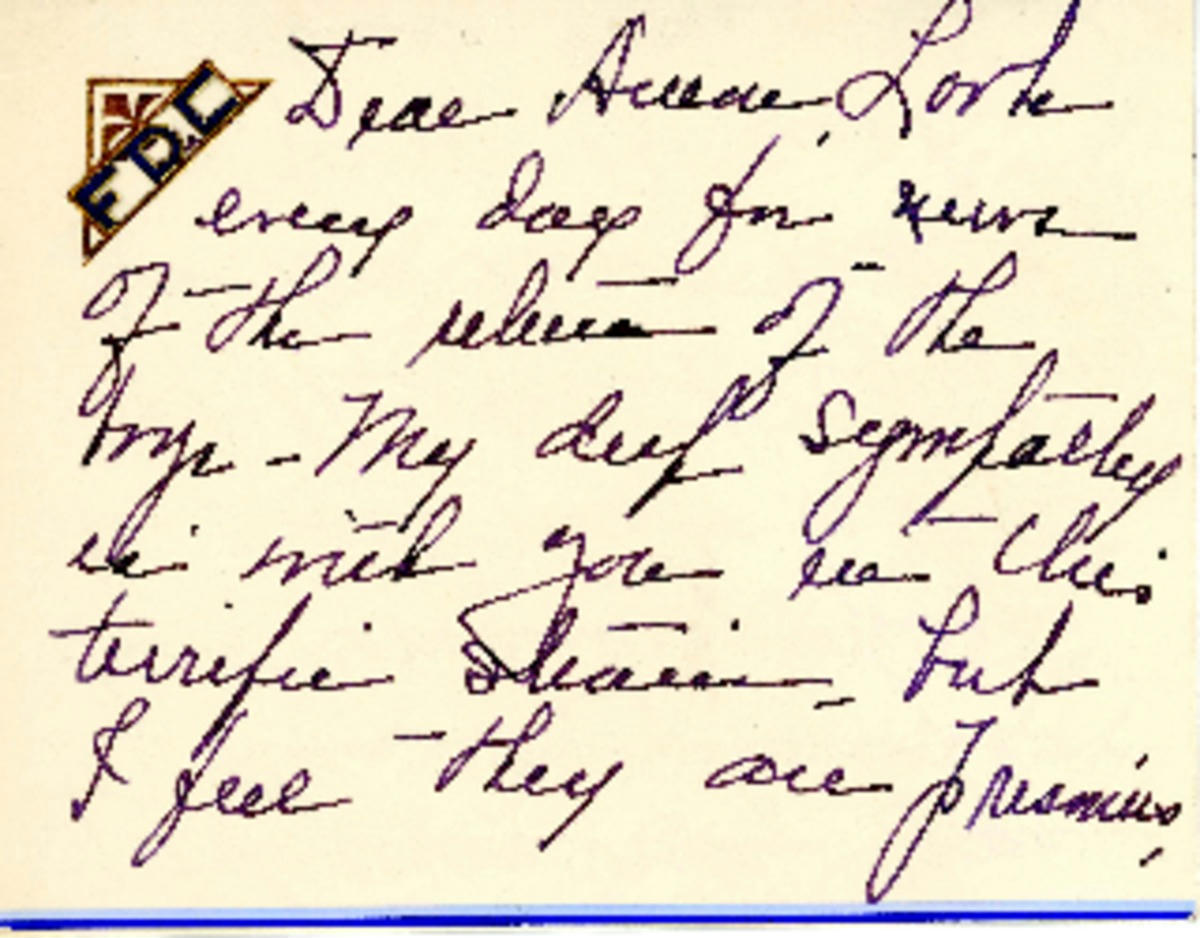 FDuC
Dear Anna, Look
every day for news
of the release of the
boys - My deep sympathy
is with you in this
terrific strain, but
I feel they are